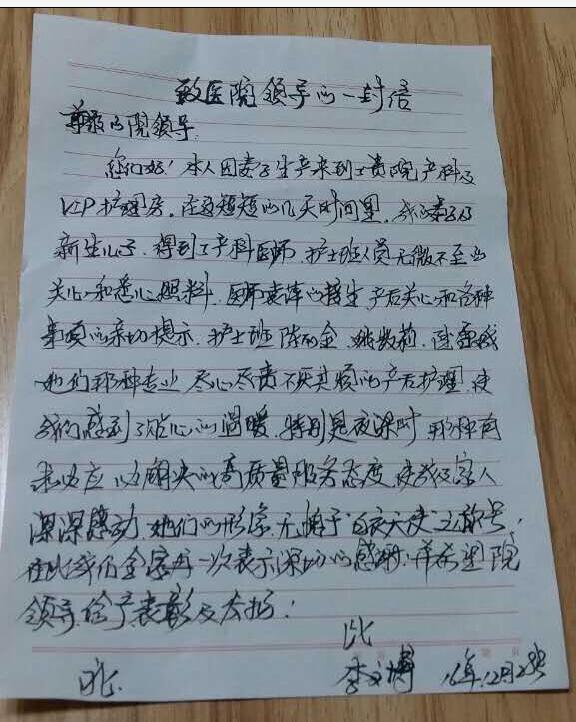 致医院领导的一封信
尊敬的院领导:
您们好!本人因妻子生产来到了贵院产科及
VIP护理房。在这短短的几天时间里,我的妻子及
新生儿子,得到了产科医师、护士班人员无微不至的
关心和悉心照料。医师的接生产后关心和各种
事项的亲切提示。护士班
她们那种专业尽心尽责不厌其烦的产后护理,使
我们感到了贴心的温暖。特别是夜深时那种有
求必应以解决的高质量服务态度,使我及家人
深深感动。她们的形象,无愧于“白衣天使”之称号,
在此我们全家再一次表示深切的感谢!并希望院
领导给予表彰及表扬!
此
李文博 16年12月28